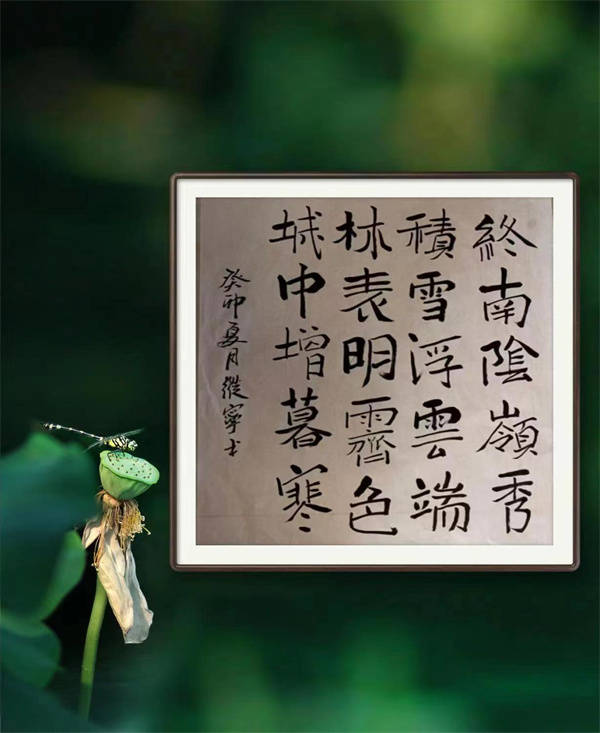 終南陰嶺秀
積雪浮雲端
林表明霽色
城中增暮寒
癸卯夏月縱寧